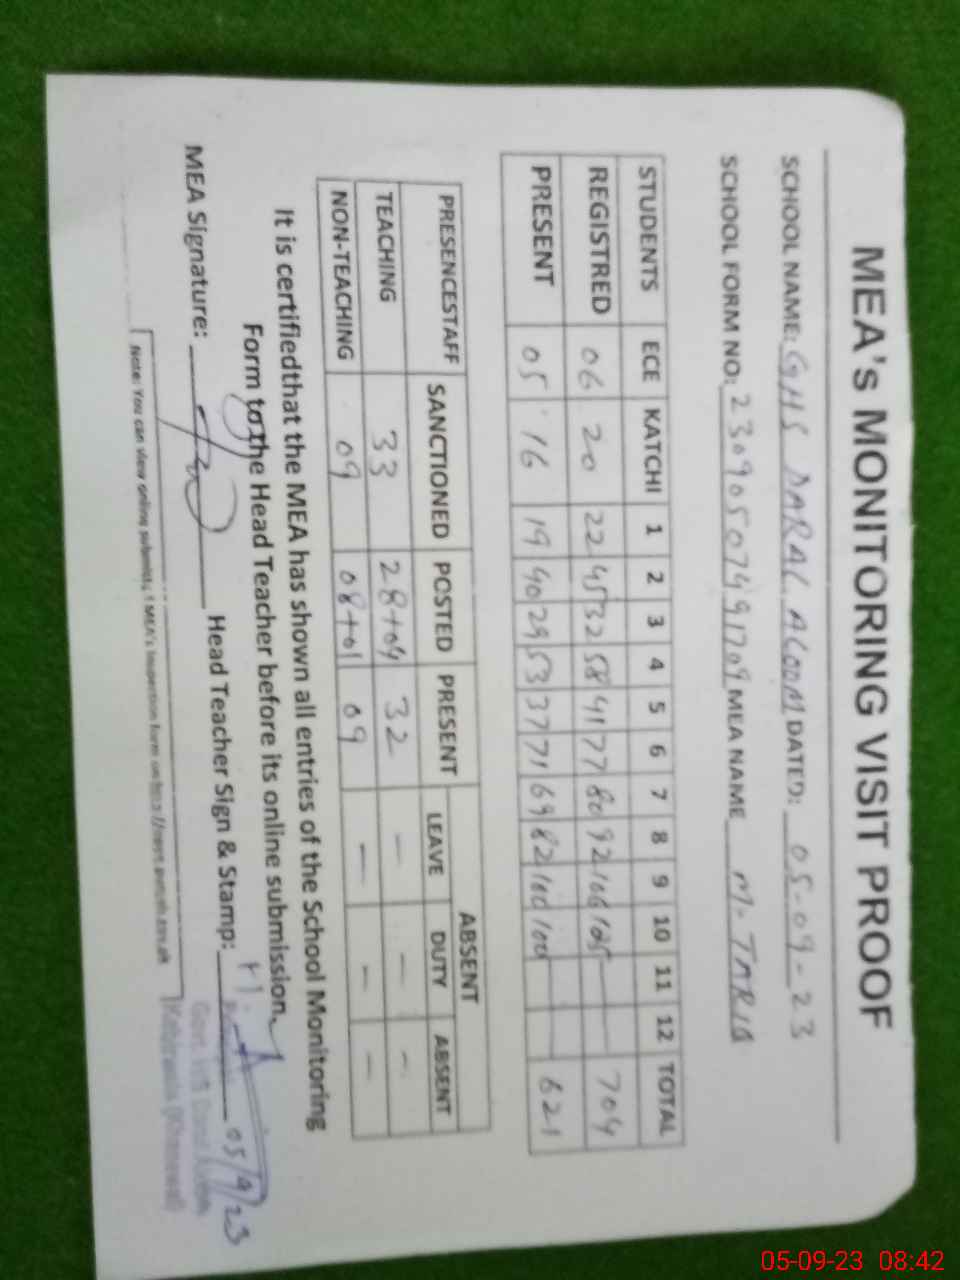 MEA's MONITORING VISIT PROOF
SCHOOL NAME: GHS DARAL ALOOM DATED: 05-09-23
SCHOOL FORM NO: 23090507491709 MEA NAME M. TARIQ
STUDENTS ECE KATCHI 1 2 3 4 5 6 7 8 9 10 11 12 TOTAL
REGISTRED 06 20 22 45 32 58 41 77 80 92 106 105 704
PRESENT 05 16 19 40 29 53 37 71 69 82 100 100 621
PRESENCESTAFF SANCTIONED POSTED PRESENT ABSENT
LEAVE DUTY ABSENT
TEACHING 33 28+04 32 — — —
NON-TEACHING 09 08+01 09 — — —
It is certifiedthat the MEA has shown all entries of the School Monitoring
Form to the Head Teacher before its online submission.
MEA Signature: Head Teacher Sign & Stamp: 05/9/23
Govt.
Note: You can view online MEA's Inspection form on
05-09-23 08:42